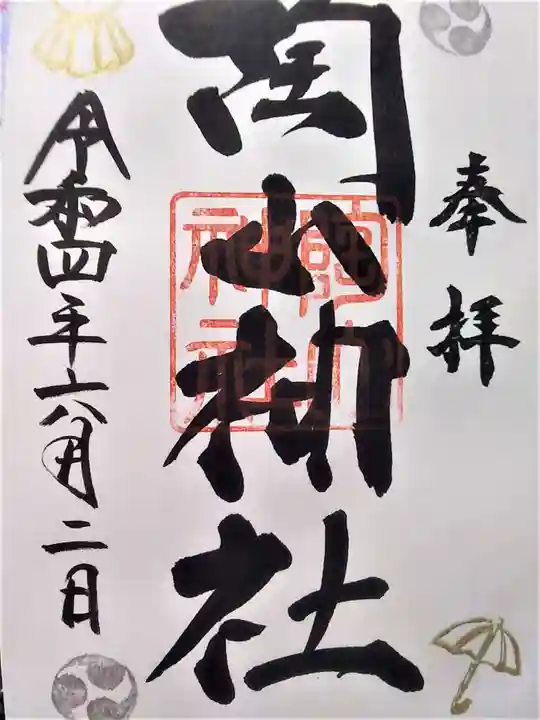 奉拝
陶山神社
陶山
神社
令和四年六月二日